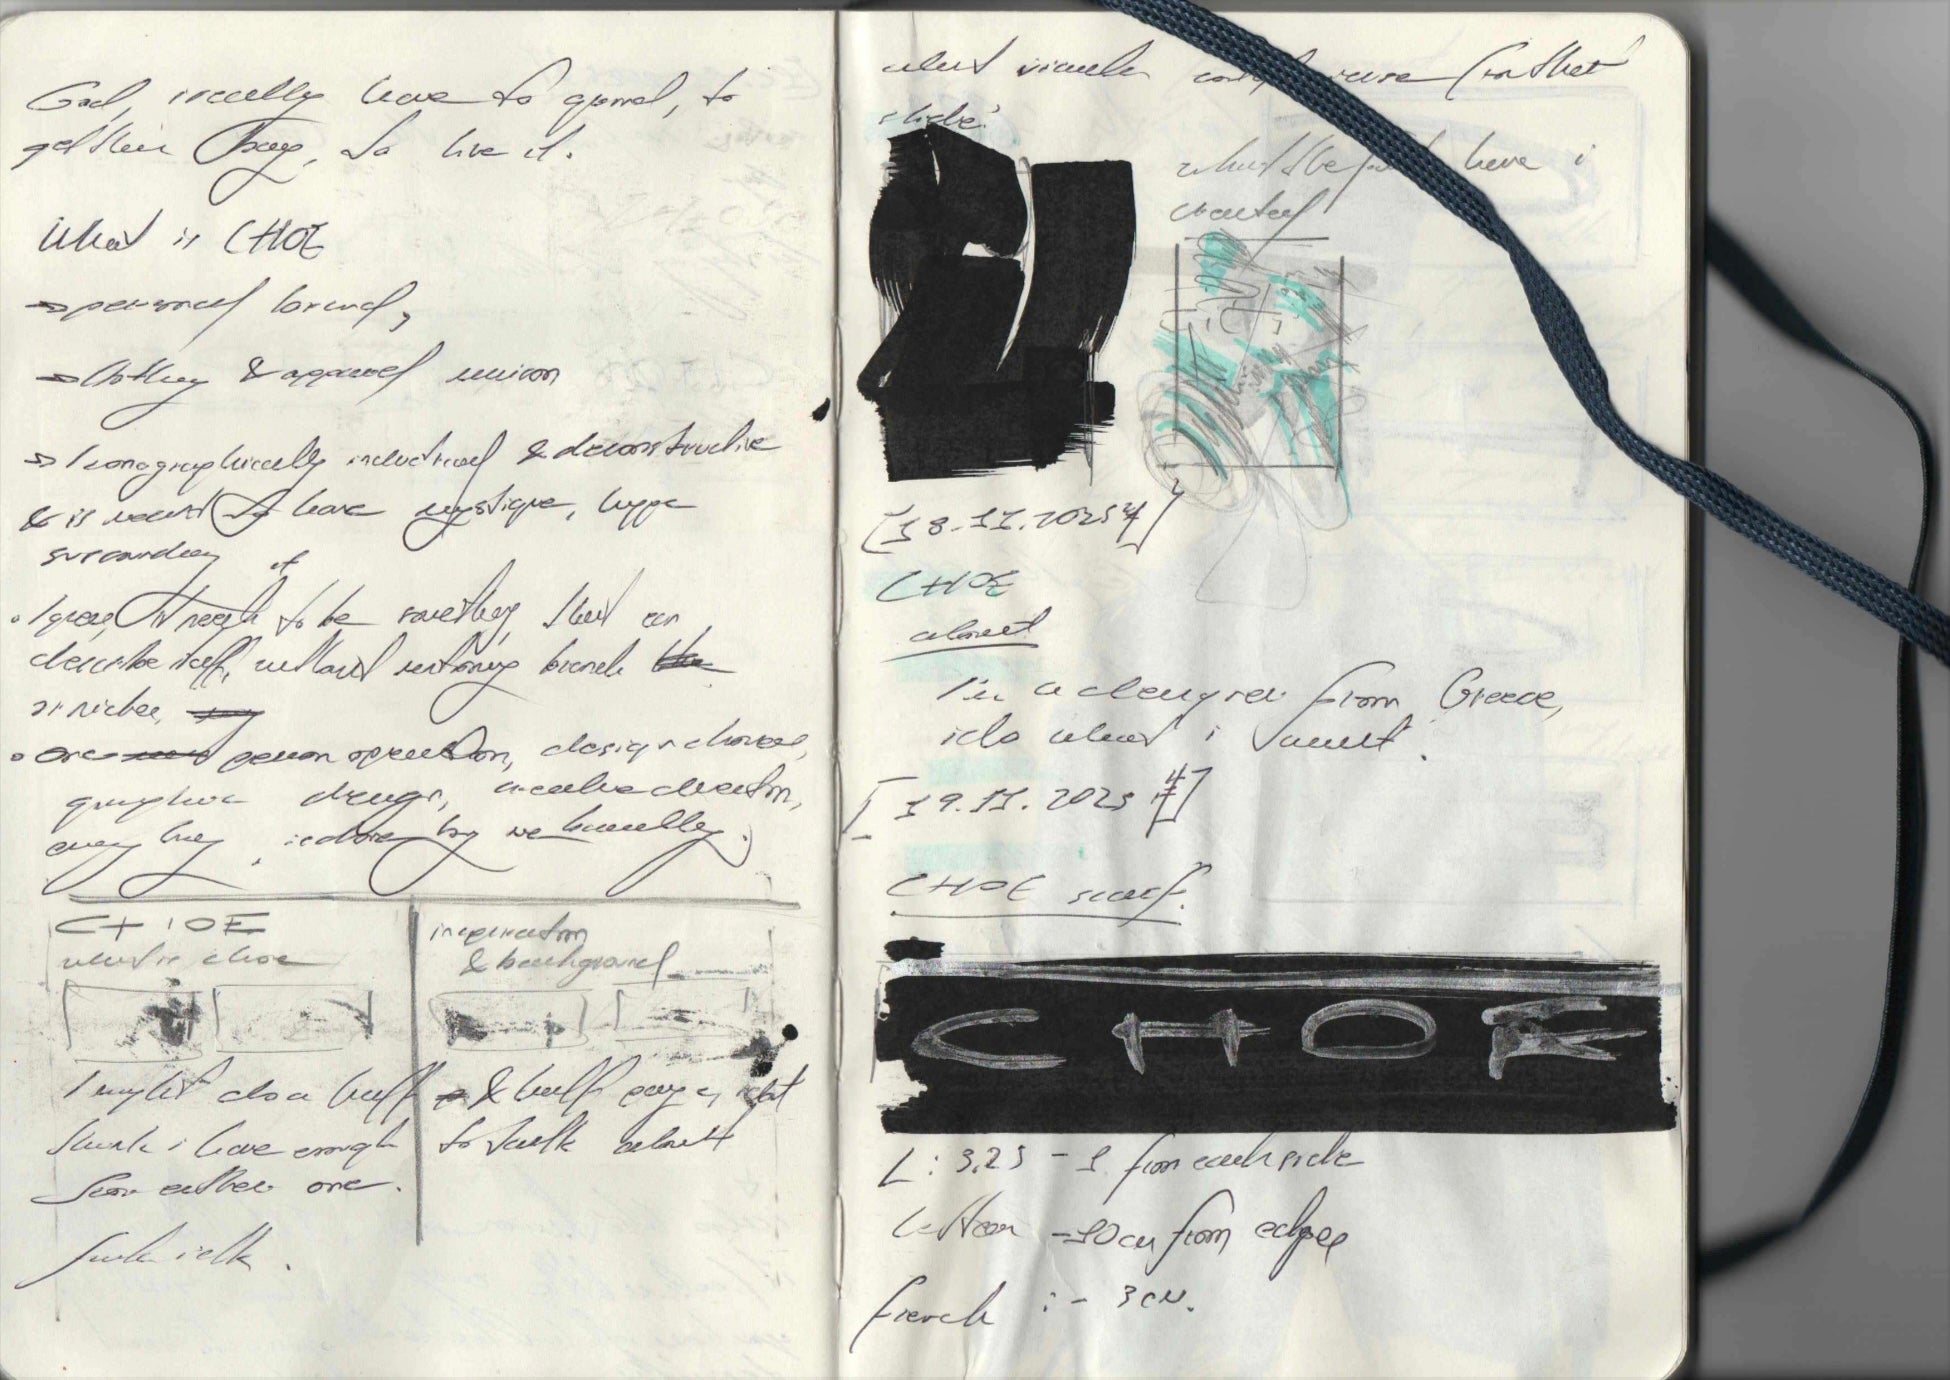 God, i really have to grind, to
get this bag, to live it.
What is CHOE
→ personal brand,
→ clothing & apparel union
→ Iconographically industrial & deconstructive
& is meant to have mystique, hype
surrounding it
• I guess, it needs to be something that can
describe itself, without mentioning brands
or niches,
• One person operation, design choices,
graphic design, creative direction,
everything, is done by me basically.
CHOE
what is choe
inspiration
& background
I might do a half & half page, idk
think i have enough to talk about
from either one.
what visuals from that
what the fuck have i
created
[18.11.2025]
CHOE
about
I'm a designer from Greece,
i do what i want.
[19.11.2025]
CHOE scarf.
CHOE
L: 3,25 - 1 from each side
letters - 10cm from edges
: - 3cm.